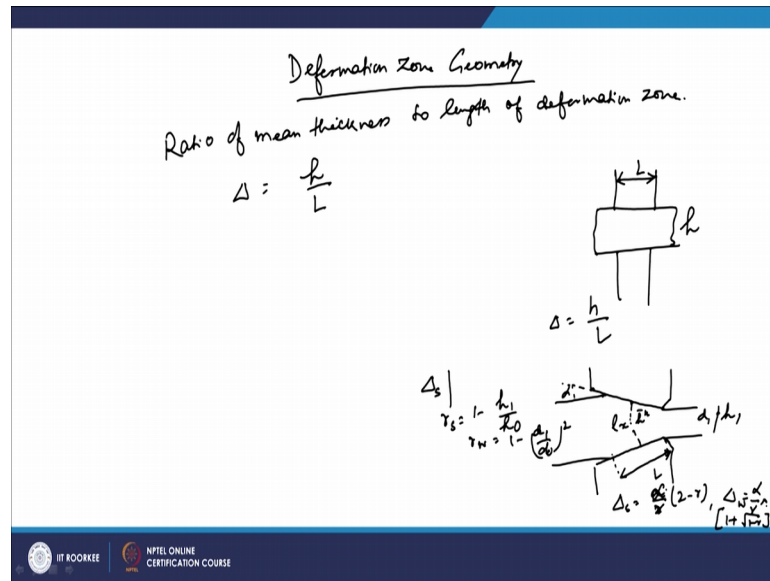 Deformation Zone Geometry
Ratio of mean thickness to length of deformation zone.
Δ = h/L
L
h
Δ = h/L
Δs
rs = 1 - h1/h0
rw = 1 - (d1/d0)^2
d1/h1
L
Δs = α/r (2-r), Δw = α/r
[1+√1-r]
IIT ROORKEE
NPTEL ONLINE
CERTIFICATION COURSE